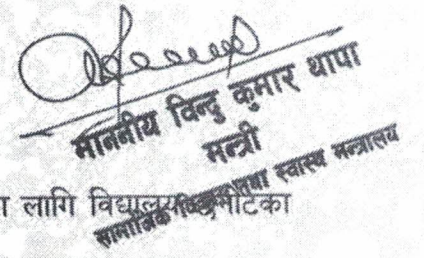 माननीय विन्दु कुमार थापा
मन्त्री
सामाजिक विकास तथा स्वास्थ्य मन्त्रालय
ा लागि